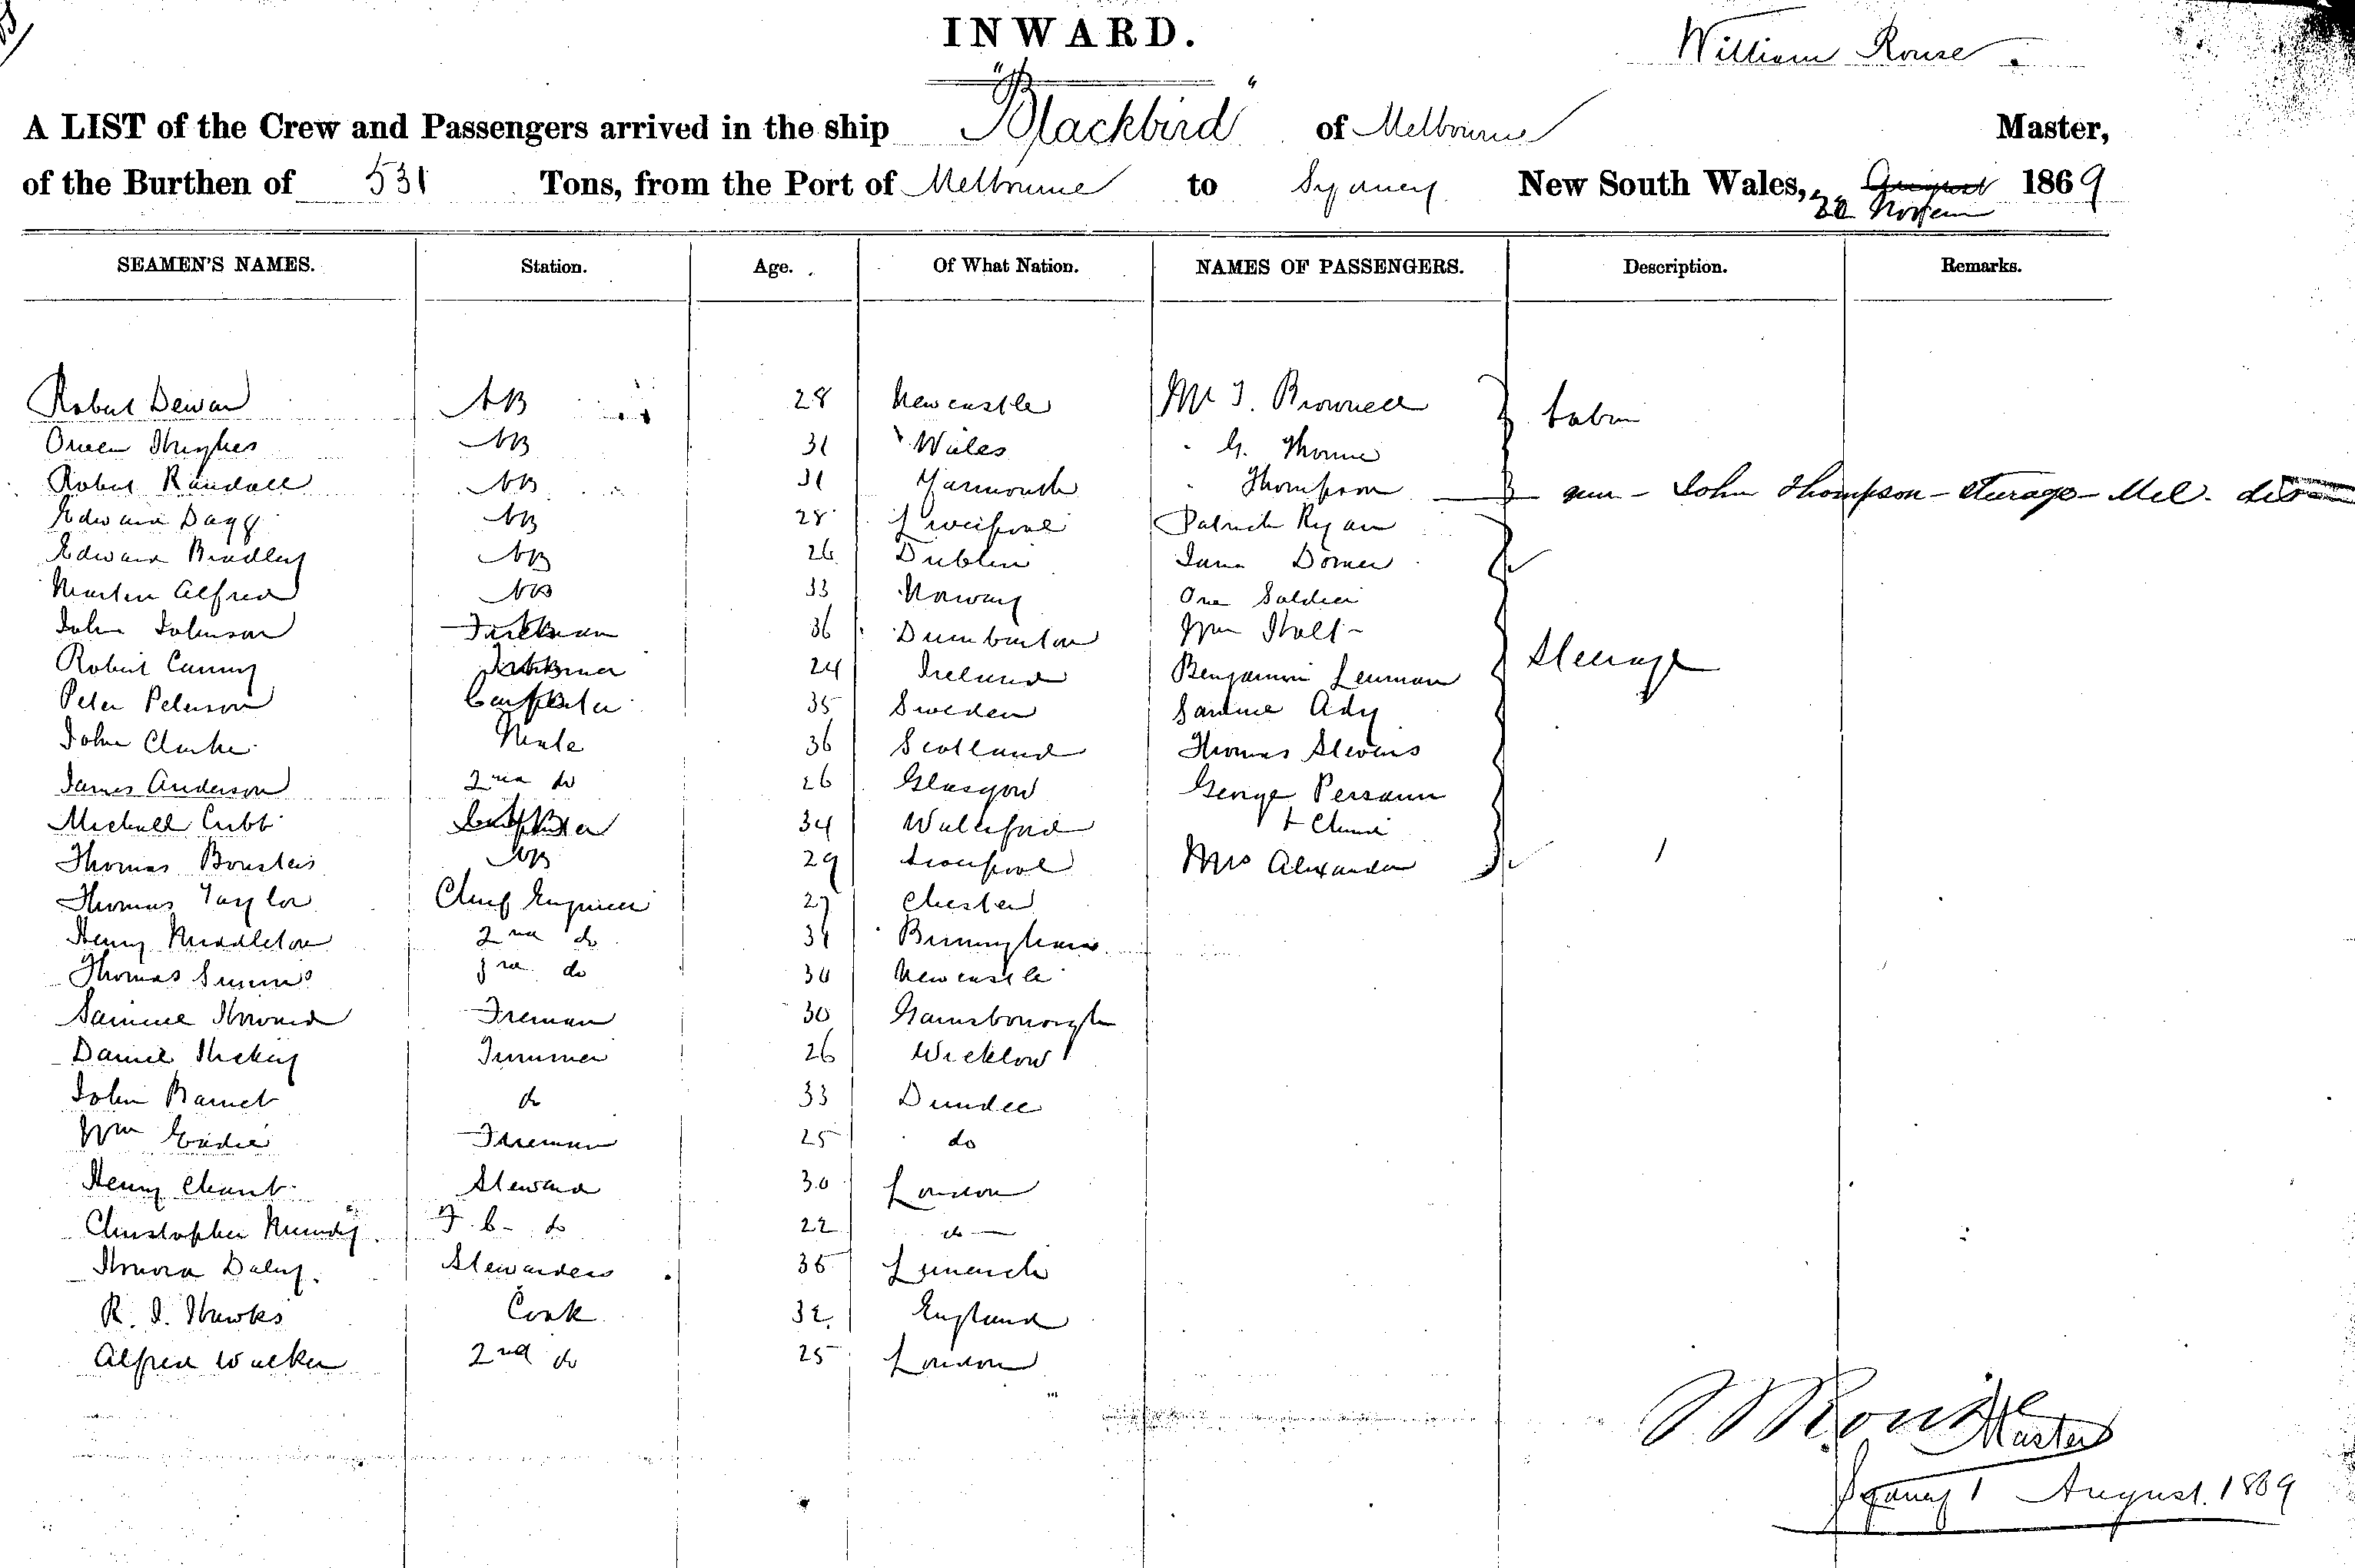 INWARD.
William Rouse
A LIST of the Crew and Passengers arrived in the ship "Blackbird" of Melbourne Master,
of the Burthen of 531 Tons, from the Port of Melbourne to Sydney New South Wales, August 1869
SEAMEN'S NAMES. Station. Age. Of What Nation. NAMES OF PASSENGERS. Description. Remarks.
Robert Dewar AB 28 Newcastle Mr J. Brownell Cabin
Owen Hughes AB 31 Wales " G. Thorne
Robert Randall AB 31 Yarmouth " Thompson John Thompson - Steerage - Mel.
Edward Dagg AB 28 Liverpool Patrick Ryan
Edward Bradley AB 26 Dublin Jane
Martin Alfred AB 33 Norway One Soldier
John Johnson 36 Dumbarton Wm Holt
Robert 24 Ireland Benjamin Steerage
Peter Peterson 35 Sweden Samuel Ady
John Clarke Mate 36 Scotland Thomas Stevens
James Anderson 2nd do 26 Glasgow George
Michall Cubb 34 Waterford + Child
Thomas AB 29 Liverpool Mrs Alexander
Thomas Taylor Chief Engineer 27 Chester
Henry Middleton 2nd do 34 Birmingham
Thomas 3rd do 30 Newcastle
Samuel Howard Fireman 30 Gainsborough
Daniel Hickey Trimmer 26 Wicklow
John Barnet do 33 Dundee
Wm Eadie Fireman 25 do
Henry Chant Steward 30 London
Christopher Mundy F. C. do 22 do
Honora Daley Stewardess 35 Limerick
R. J. Hawks Cook 32 England
Alfred Walker 2nd do 25 London
W Rouse
Master
Sydney 1 August. 1869